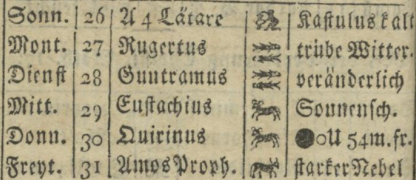 Sonn. 26 A 4 Lätare Kastulus kalt
Mont. 27 Rugertus trübe Witter.
Dienst 28 Guntramus veränderlich
Mitt. 29 Eustachius Sonnensch.
Donn. 30 Quirinus 0U 54m.fr.
Freyt. 31 Amos Proph. starker Nebel